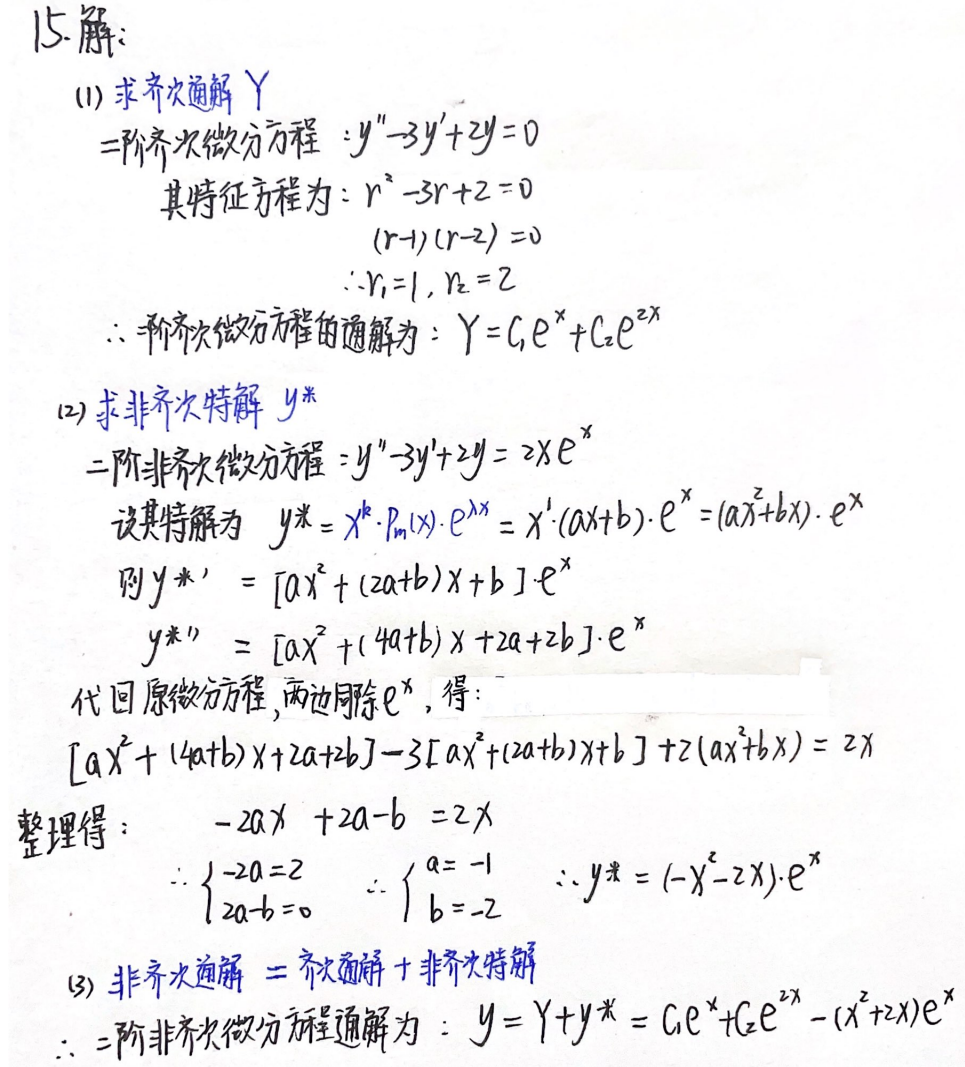 15.解:
(1) 求齐次通解 Y
二阶齐次微分方程:y''-3y'+2y=0
其特征方程为:r²-3r+2=0
(r-1)(r-2)=0
∴r₁=1, r₂=2
∴二阶齐次微分方程的通解为:Y=C₁eˣ+C₂e²ˣ
(2) 求非齐次特解 y*
二阶非齐次微分方程:y''-3y'+2y=2xeˣ
设其特解为 y*=xᵏ·Pₘ(x)·e^λx=x¹·(ax+b)·eˣ=(ax²+bx)·eˣ
则y*' =[ax²+(2a+b)x+b]·eˣ
y*'' =[ax²+(4a+b)x+2a+2b]·eˣ
代回原微分方程,两边同除eˣ,得:
[ax²+(4a+b)x+2a+2b]-3[ax²+(2a+b)x+b]+2(ax²+bx)=2x
整理得: -2ax+2a-b=2x
∴{-2a=2 ∴{a=-1 ∴y*=(-x²-2x)·eˣ
2a-b=0 b=-2
(3) 非齐次通解=齐次通解+非齐次特解
∴二阶非齐次微分方程通解为:y=Y+y*=C₁eˣ+C₂e²ˣ-(x²+2x)eˣ